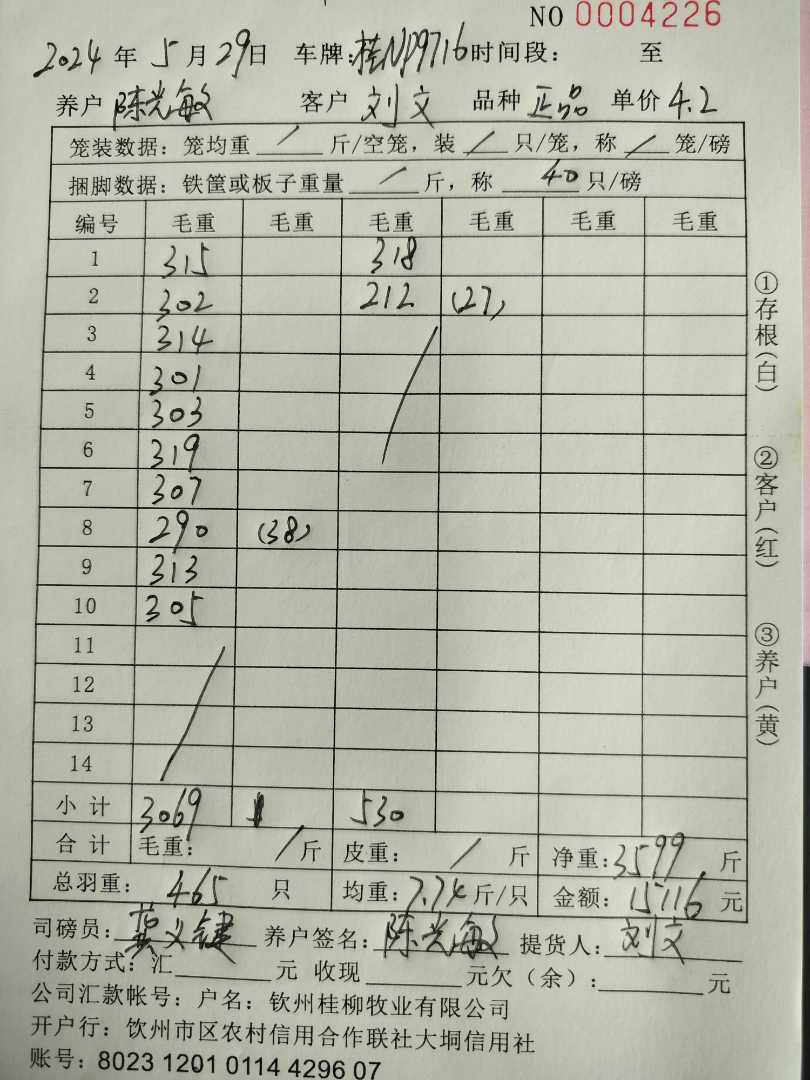 NO 0004226
2024 年 5 月 29 日 车牌:桂NP9716 时间段: 至
养户 陈光敏 客户 刘文 品种 正品 单价 4.2
笼装数据: 笼均重 / 斤/空笼, 装 / 只/笼, 称 / 笼/磅
捆脚数据: 铁筐或板子重量 / 斤, 称 40 只/磅
编号 毛重 毛重 毛重 毛重 毛重 毛重
1 315 318
2 302 212 (27)
3 314
4 301
5 303
6 319
7 307
8 290 (38)
9 313
10 305
11
12
13
14
小计 3069 530
合计 毛重: / 斤 皮重: / 斤 净重: 3599 斤
总羽重: 465 只 均重: 7.74 斤/只 金额: 15116 元
司磅员: 黄义键 养户签名: 陈光敏 提货人: 刘文
付款方式: 汇 元 收现 元欠(余): 元
公司汇款帐号: 户名: 钦州桂柳牧业有限公司
开户行: 钦州市区农村信用合作联社大垌信用社
账号: 8023 1201 0114 4296 07
①存根(白)
②客户(红)
③养户(黄)